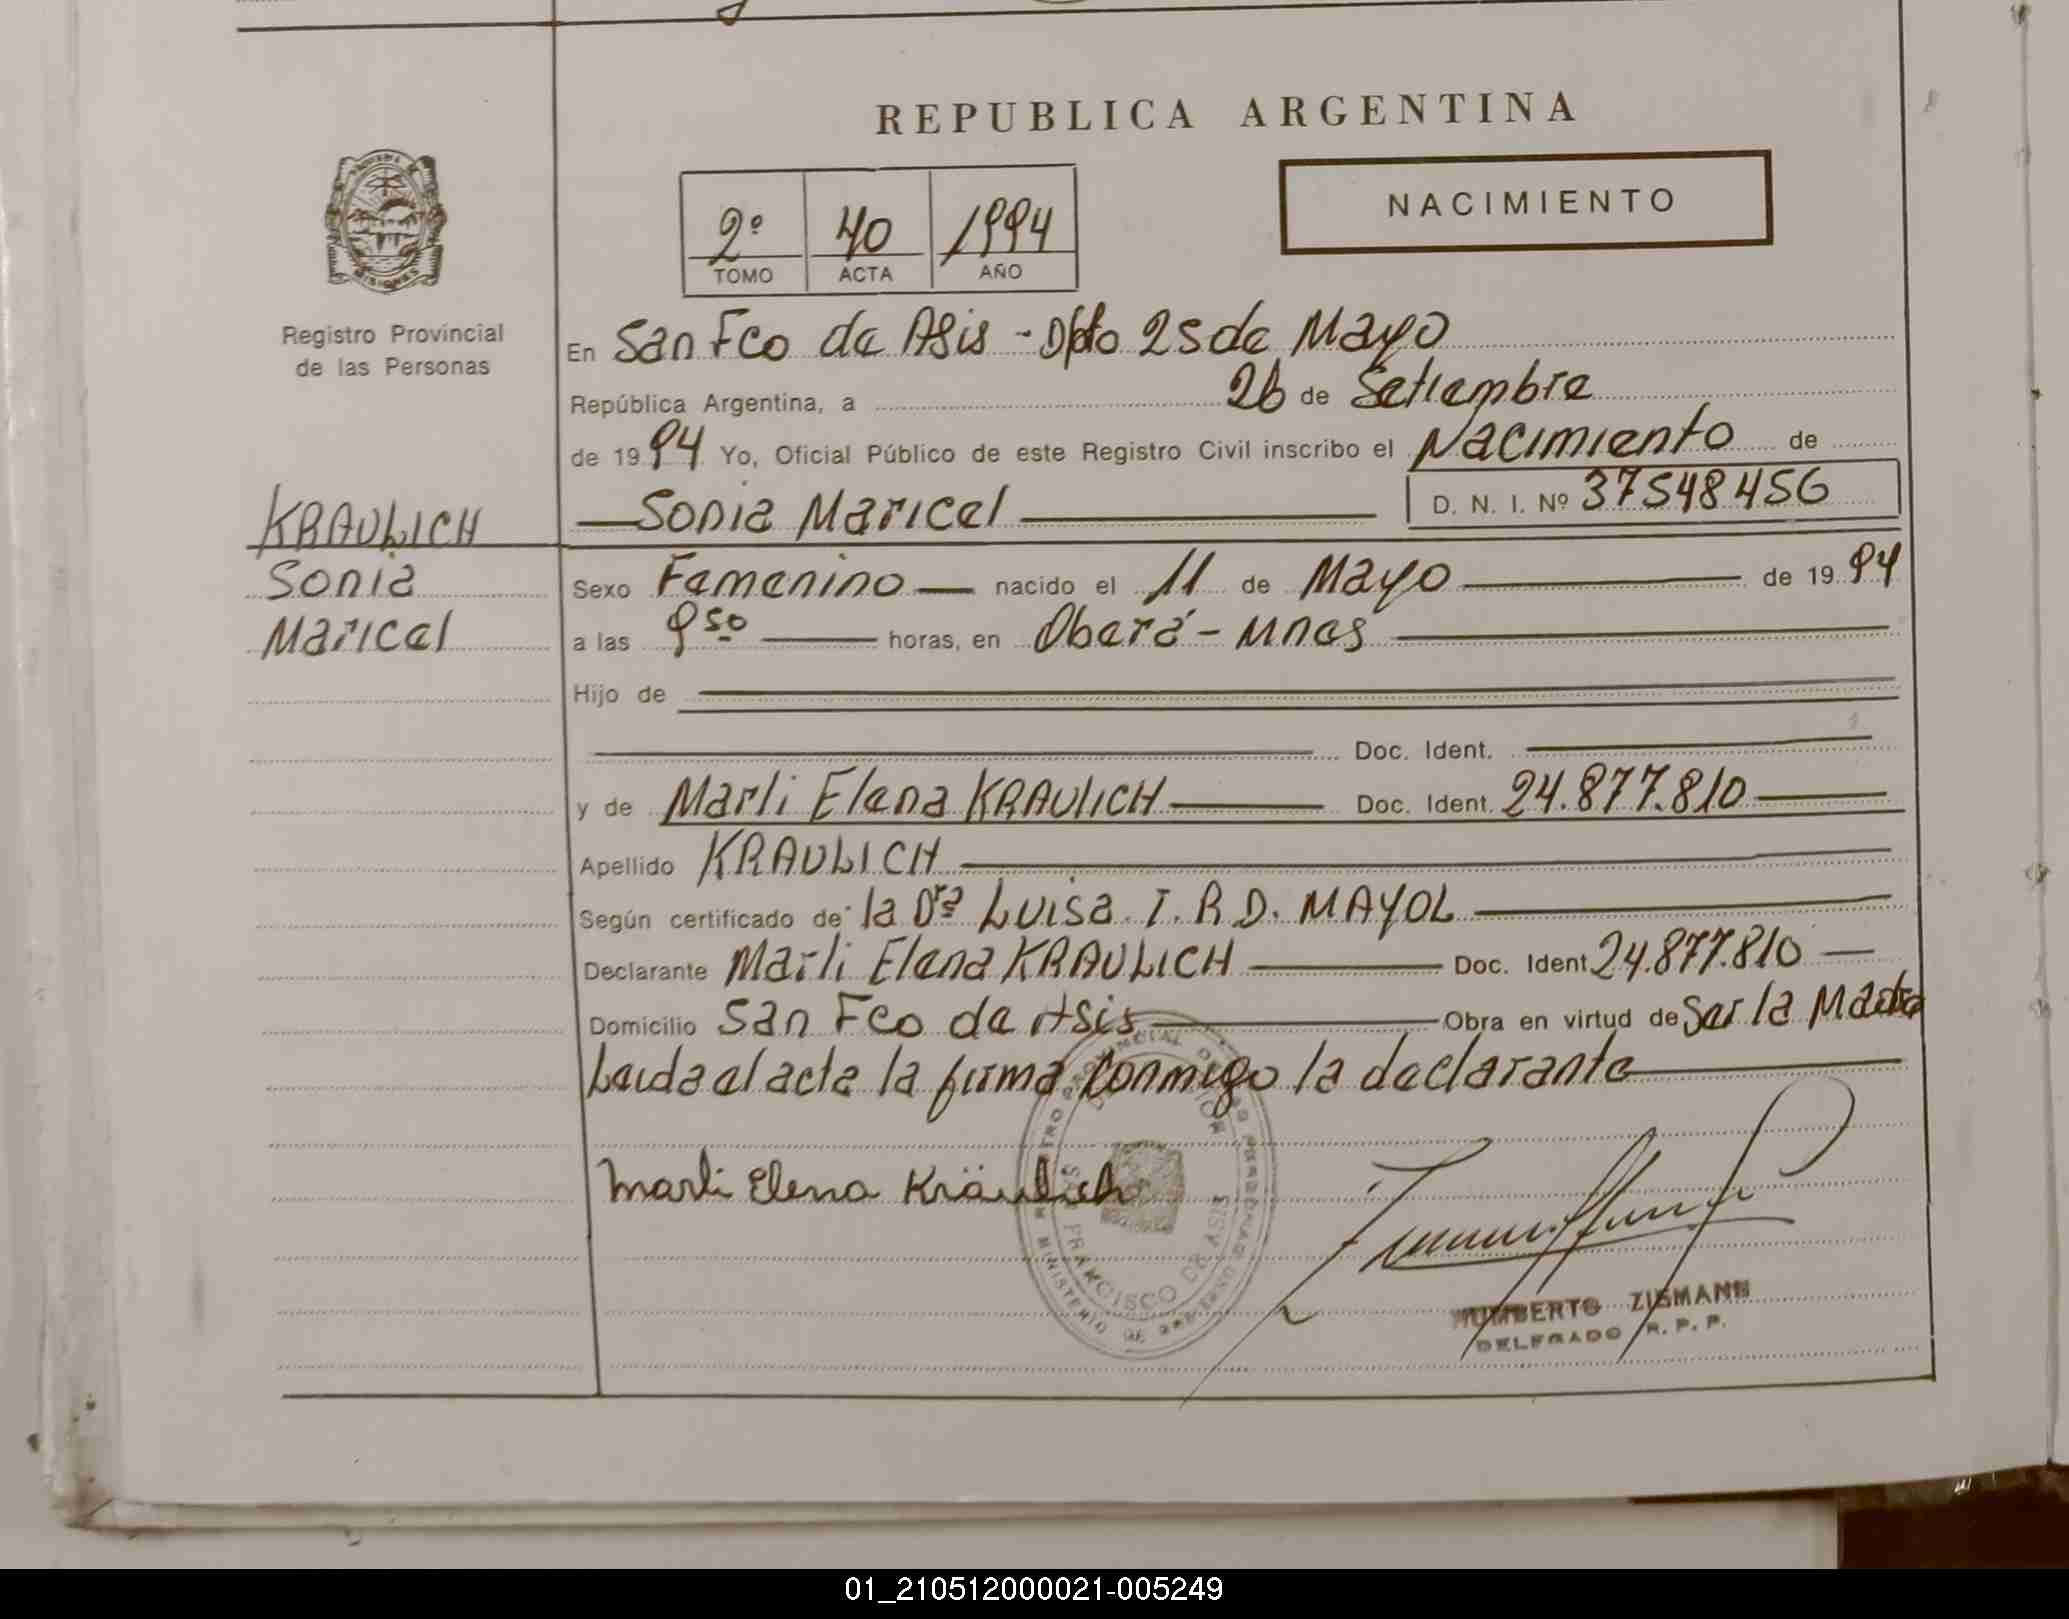 REPUBLICA ARGENTINA
NACIMIENTO
2º 40 1994
TOMO ACTA AÑO
Registro Provincial
de las Personas
En San Fco de Asis - Dpto 25 de Mayo
República Argentina, a 26 de Setiembre
de 1994 Yo, Oficial Público de este Registro Civil inscribo el Nacimiento de
Sonia Maricel D. N. I. Nº 37548456
KRAULICH
Sonia
Maricel
Sexo Femenino nacido el 11 de Mayo de 1994
a las 9 50 horas, en Oberá - Mnes
Hijo de
Doc. Ident.
y de Marli Elena KRAULICH Doc. Ident. 24.877.810
Apellido KRAULICH
Según certificado de la Drª Luisa. I. R. D. MAYOL
Declarante Marli Elena KRAULICH Doc. Ident 24.877.810
Domicilio San Fco de Asis Obra en virtud de Ser la Madre
Leida el acta la firma conmigo la declarante
Marli Elena Kräulich
REGISTRO PROVINCIAL DE LAS PERSONAS
MINISTERIO DE GOBIERNO
SAN FRANCISCO DE ASIS
HUMBERTO ZISMANN
DELEGADO R. P. P.
01_210512000021-005249